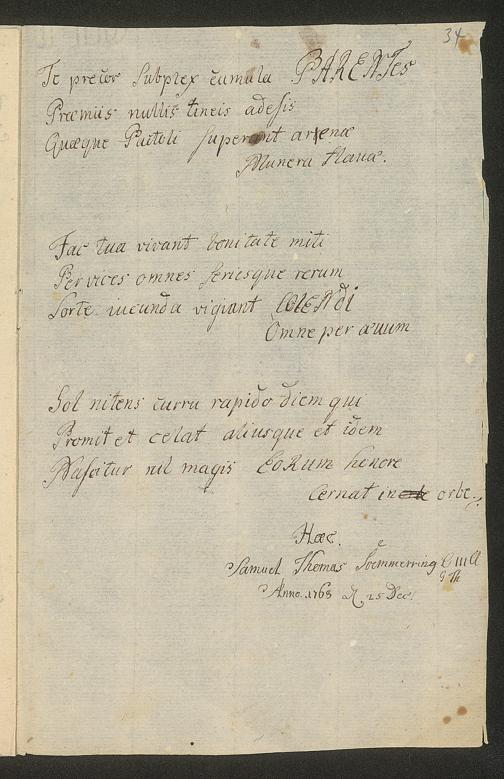 34
Te precor Subplex cumula PARENTES
Præmiis nullis tineis adesis
Quæque Pactoli superant arenæ
Munera flavæ.
Fac tua vivant bonitate miti
Per vices omnes seriesque rerum
Sorte iucunda vigiant COLENDI
Omne per ævum
Sol nitens curru rapido diem qui
Promit et celat aliusque et idem
Nascitur nil magis EORUM honore
Cernat in orbe orbe.
Hæc.
Samuel Thomas Soemmerring
Anno. 1768 d. 25 Dec.